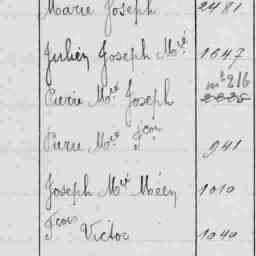 Marie Joseph 2481
Julien Joseph Mie 1647
Pierre Mie Joseph
Pierre Mie Fcois 941
Joseph Mie Méen 1010
Fcois Victor 1040